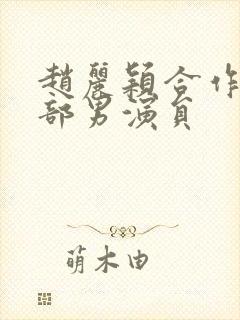 趙麗穎合作
部男演員
萌木由